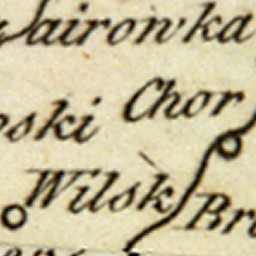 airowka
Chor
oski
Wilsk
Br